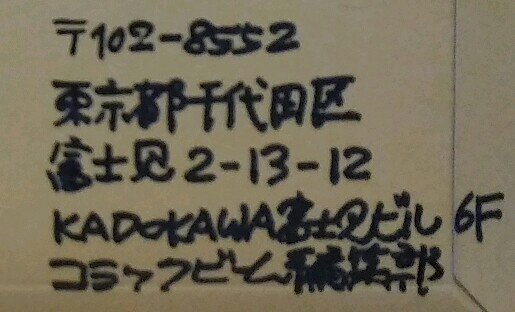 〒102-8552
東京都千代田区
富士見2-13-12
KADOKAWA富士見ビル 6F
コミックビーム編集部